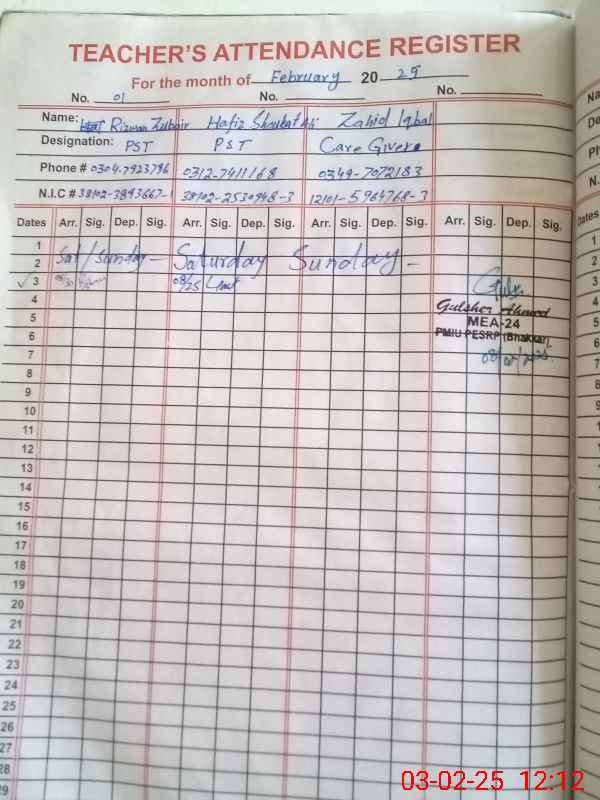 TEACHER'S ATTENDANCE REGISTER
For the month of February 2025
No. 01 No. No.
Name: Rizwan Zubair Hafiz Shaukat Ali Zahid Iqbal
Designation: PST PST Care Givere
Phone # 0304-7923796 0312-7411168 0349-7072183
N.I.C # 38102-3893667-1 38102-2530948-3 12101-5964768-3
Dates Arr. Sig. Dep. Sig. Arr. Sig. Dep. Sig. Arr. Sig. Dep. Sig. Arr. Sig. Dep. Sig.
1
2 Sat/Sunday - Saturday Sunday -
3 08/25
4
Gulsher Ahmed
5 MEA-24
6 PMIU PESRP (Bhakkar)
7
8
9
10
11
12
13
14
15
16
17
18
19
20
21
22
23
24
25
26
27
28
29
03-02-25 12:12